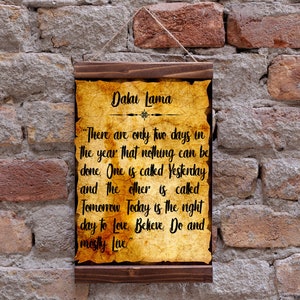 Dalai Lama
"There are only two days in
the year that nothing can be
done. One is called Yesterday
and the other is called
Tomorrow. Today is the right
day to Love, Believe, Do and
mostly Live."